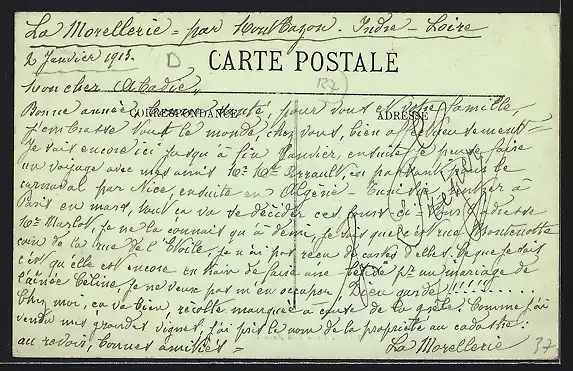 La Morellerie = par Montbazon. Indre – Loire
2 Janvier 1913.
D
CARTE POSTALE
R7
Mon cher Abadie,
CORRESPONDANCE
ADRESSE
Bonne année, bonne santé, pour vous et votre famille,
j'embrasse tout le monde, chez vous, bien affectueusement =
Je suis encore ici jusqu'à fin Janvier, ensuite je pense faire
un voyage avec mes amis Mr Me Perrault, en partant pour le
carnaval par Nice, ensuite en Algérie – Tunisie – rentrer à
Paris en mars, tout ça va se décider ces jours-ci = pour l'adresse
Me Marlot, je ne la connais qu'à demi, je sais que c'est rue Montenotte
coin de la rue de l'Etoile, je n'ai pas reçu de cartes d'elles. Ce que je sais
c'est qu'elle est encore en train de faire une pr un mariage de
l'aînée Céline, je ne veux pas m'en occuper, Dieu garde !!!!!......
Chez moi, ça va bien, récolte manquée à cause de la grêle. Comme j'ai
vendu mes grandes vignes, j'ai pris le nom de la propriété au cadastre :
au revoir, bonnes amitiés =
La Morellerie
37